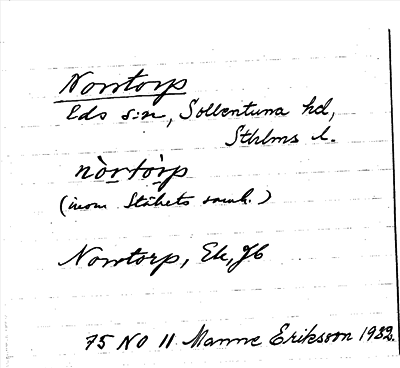 Norrtorp
Eds s:n, Sollentuna hd,
Sthlms l.
nòrtòrp
(inom Stäkets samh.)
Norrtorp, Ek, Jb
75 NO 11 Manne Eriksson 1932.